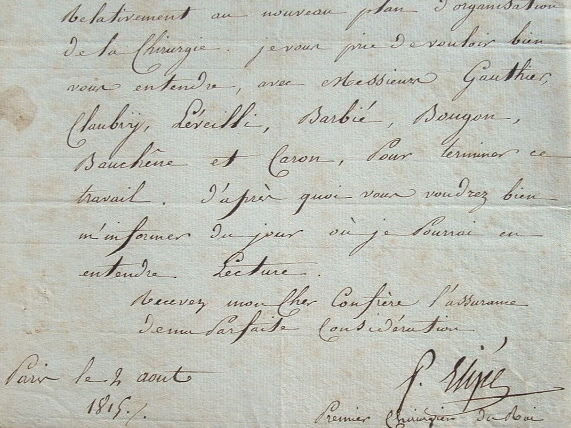 Relativement au nouveau plan d'organisation
de la Chirurgie. je vous prie de vouloir bien
vous entendre, avec Messieurs Gauthier,
Claubry, Léveillé, Barbié, Bougon,
Bauchêne et Caron, Pour terminer ce
travail. d'après quoi vous voudrez bien
m'informer du jour où je Pourrai en
entendre Lecture.
Recevez mon Cher Confrère l'assurance
de ma Parfaite Considération
P. Elizé
Paris le 2 aout
1815./.
Premier Chirurgien du Roi